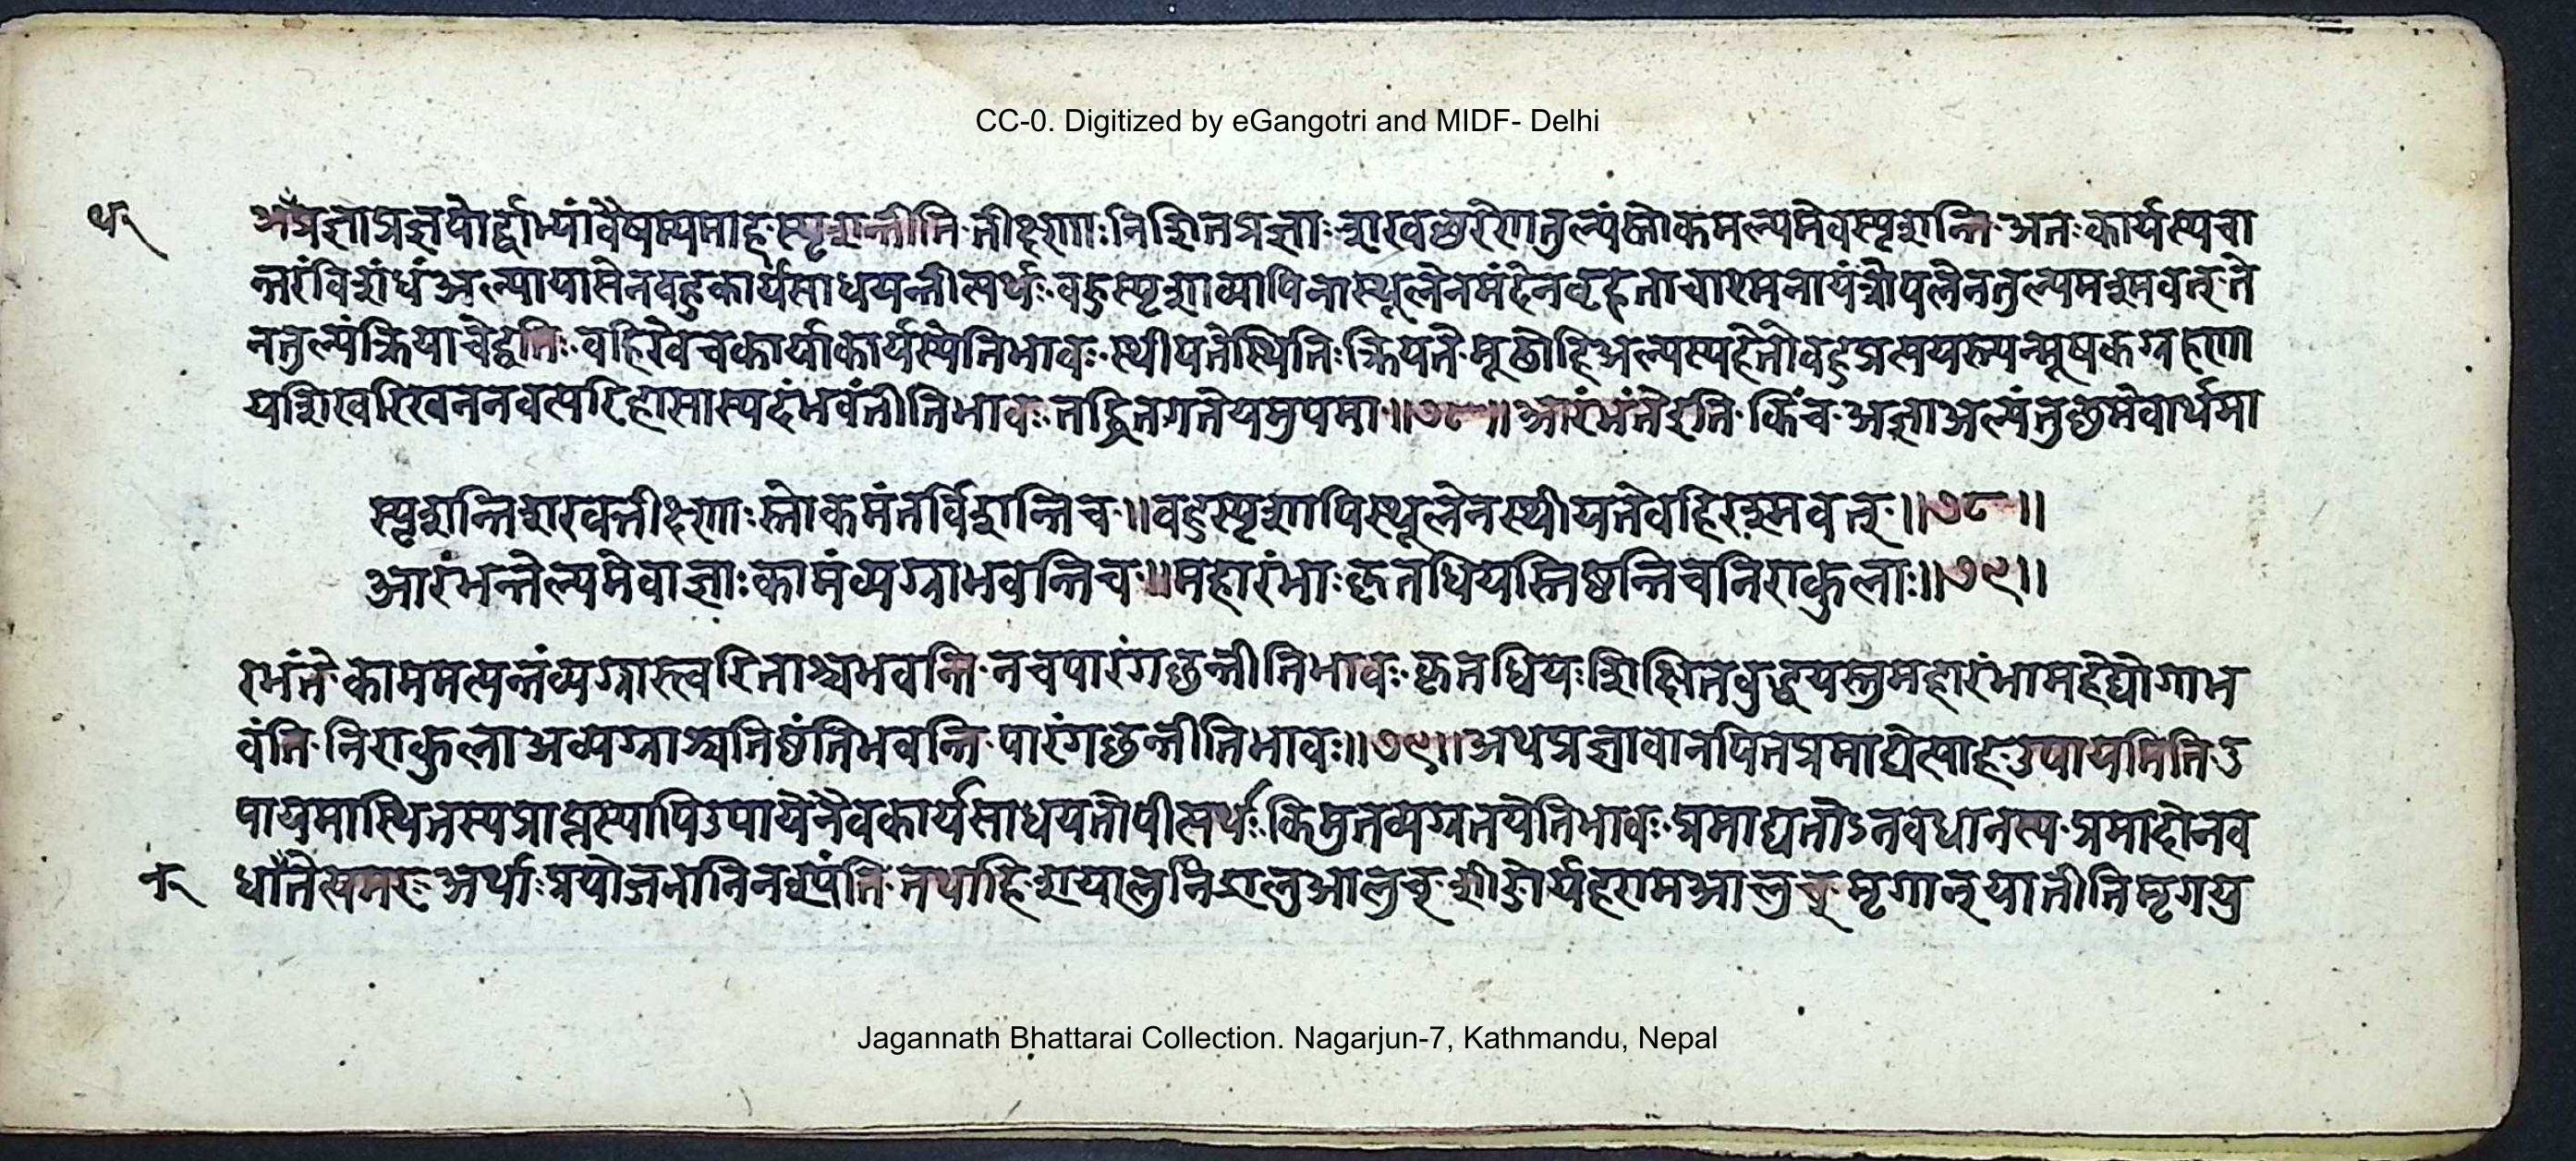 CC-0. Digitized by eGangotri and MIDF- Delhi
अप्रज्ञाप्रज्ञयोर्द्वाभ्यांवैषम्यमाह स्पृशन्तीति तीक्ष्णाः निशितप्रज्ञाः शरवच्छरेणतुल्यंस्तोकमल्पमेवस्पृशन्ति अतःकार्यस्यचा
न्तरंविशंधंअल्पायासेनबहुकार्यसाधयन्तीत्यर्थः वहुस्पृशाव्यापिनास्थूलेनमंदेनवृहताचाश्मनायंत्रोपलेनतुल्यमश्मवत् ते
नतुल्यंक्रियाचेद्वतिः वहिरेवचकार्याकार्यस्येतिभावः स्थीयतेस्थितिःक्रियते मूढोहिअल्पस्यहेतोवहुप्रत्सय मूषकग्रहणा
यशिखरिखननवत्परिहासास्पदंभवंतीतिभावः तद्धितगतेयमुपमा ॥७८॥ आरंभंतेइति किंच अज्ञाअल्पंतुछमेवार्थमा
स्पृशन्तिशरवत्तीक्ष्णाः स्तोकमंतर्विशन्तिच ॥ वहुस्पृशापिस्थूलेनस्थीयतेवहिरश्मवत् ॥७८॥
आरंभन्तेल्पमेवाज्ञाःकामंव्यग्राभवन्तिच ॥ महारंभाःकृतधियस्तिष्ठन्तिचनिराकुलाः॥७९॥
रभंते काममत्यन्तंव्यग्रास्त्वरिताश्चभवन्ति नचपारंगछन्तीतिभावः कृतधियःशिक्षितवुद्धयस्तुमहारंभामहेद्योगाभ
वंति निराकुलाअव्यग्राश्चतिष्ठंतिभवन्ति पारंगछन्तीतिभावः॥७९॥अथप्रज्ञावानपिनप्रमाद्येत्याह उपायमिति उ
पायमास्थितस्यप्राप्तस्यापिउपायेनैवकार्यसाधयतोपीत्यर्थः किमुतव्यग्रतयेतिभावः प्रमाद्यतोऽनवधानस्य प्रमादोनव
धानेत्यमरः अर्थाः प्रयोजनानिनश्यंति तथाहि शयालुर्निद्रालुआलुच् शीङोर्यहणमआलुच् मृगान्यातीतिमृगयु
Jagannath Bhattarai Collection. Nagarjun-7, Kathmandu, Nepal